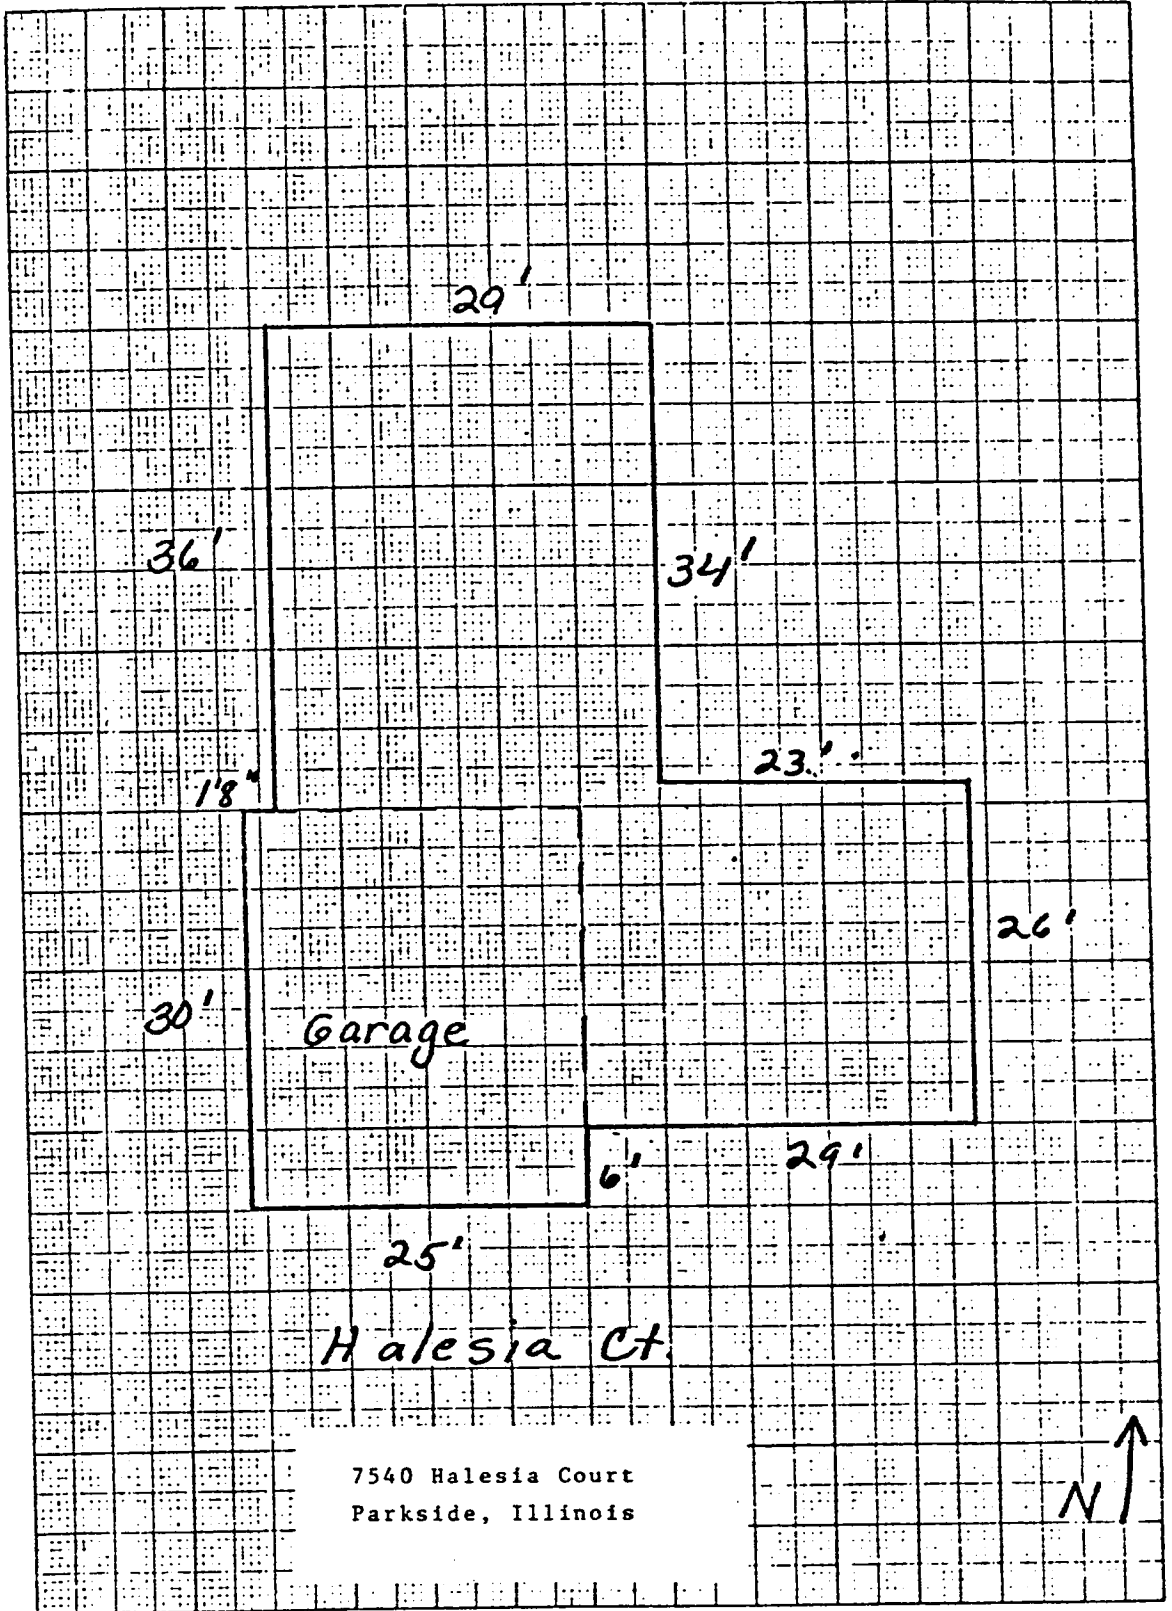 29'
36'
34'
23'
1'8"
26'
30'
Garage
29'
6'
25'
Halesia Ct.
7540 Halesia Court
Parkside, Illinois
N